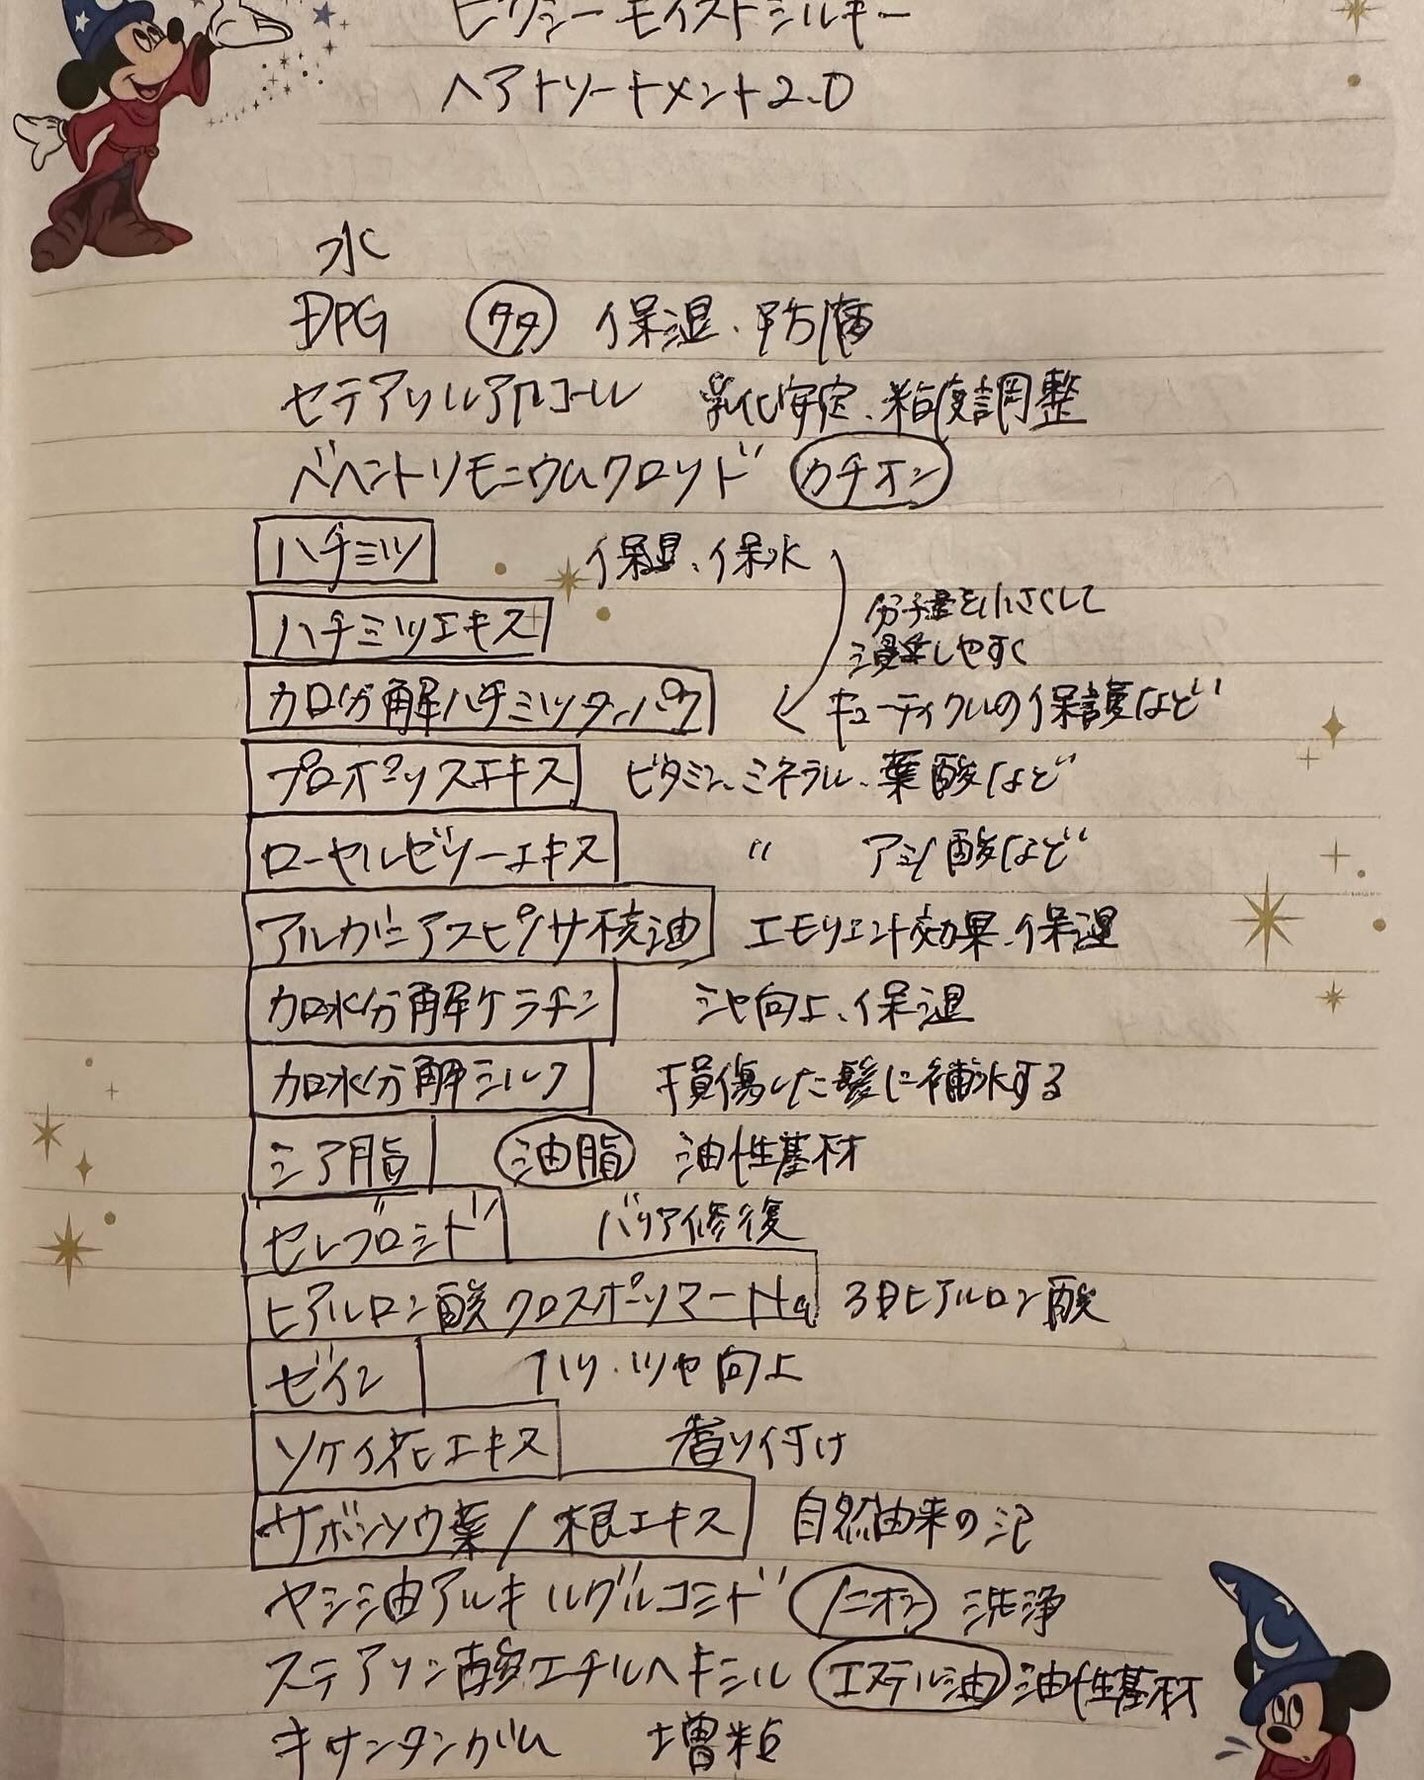 ピクシーモイストシルキー
ヘアトリートメント2.0
水
DPG 多 保湿、防腐
セテアリルアルコール 乳化安定、粘度調整
ベヘントリモニウムクロリド カチオン
ハチミツ 保湿、保水
ハチミツエキス 分子量を小さくして
浸透しやすく
加水分解ハチミツタンパク キューティクルの保護など
プロポリスエキス ビタミン、ミネラル、葉酸など
ローヤルゼリーエキス 〃 アミノ酸など
アルガニアスピノサ核油 エモリエント効果、保湿
加水分解ケラチン ツヤ向上、保湿
加水分解シルク 損傷した髪に補水する
シア脂 油脂 油性基材
セレブロシド バリア修復
ヒアルロン酸クロスポリマーNa 3Dヒアルロン酸
ゼイン ハリ・ツヤ向上
ソケイ花エキス 香り付け
サボンソウ葉/根エキス 自然由来の泡
ヤシ油アルキルグルコシド ノニオン 洗浄
ステアリン酸エチルヘキシル エステル油 油性基材
キサンタンガム 増粘